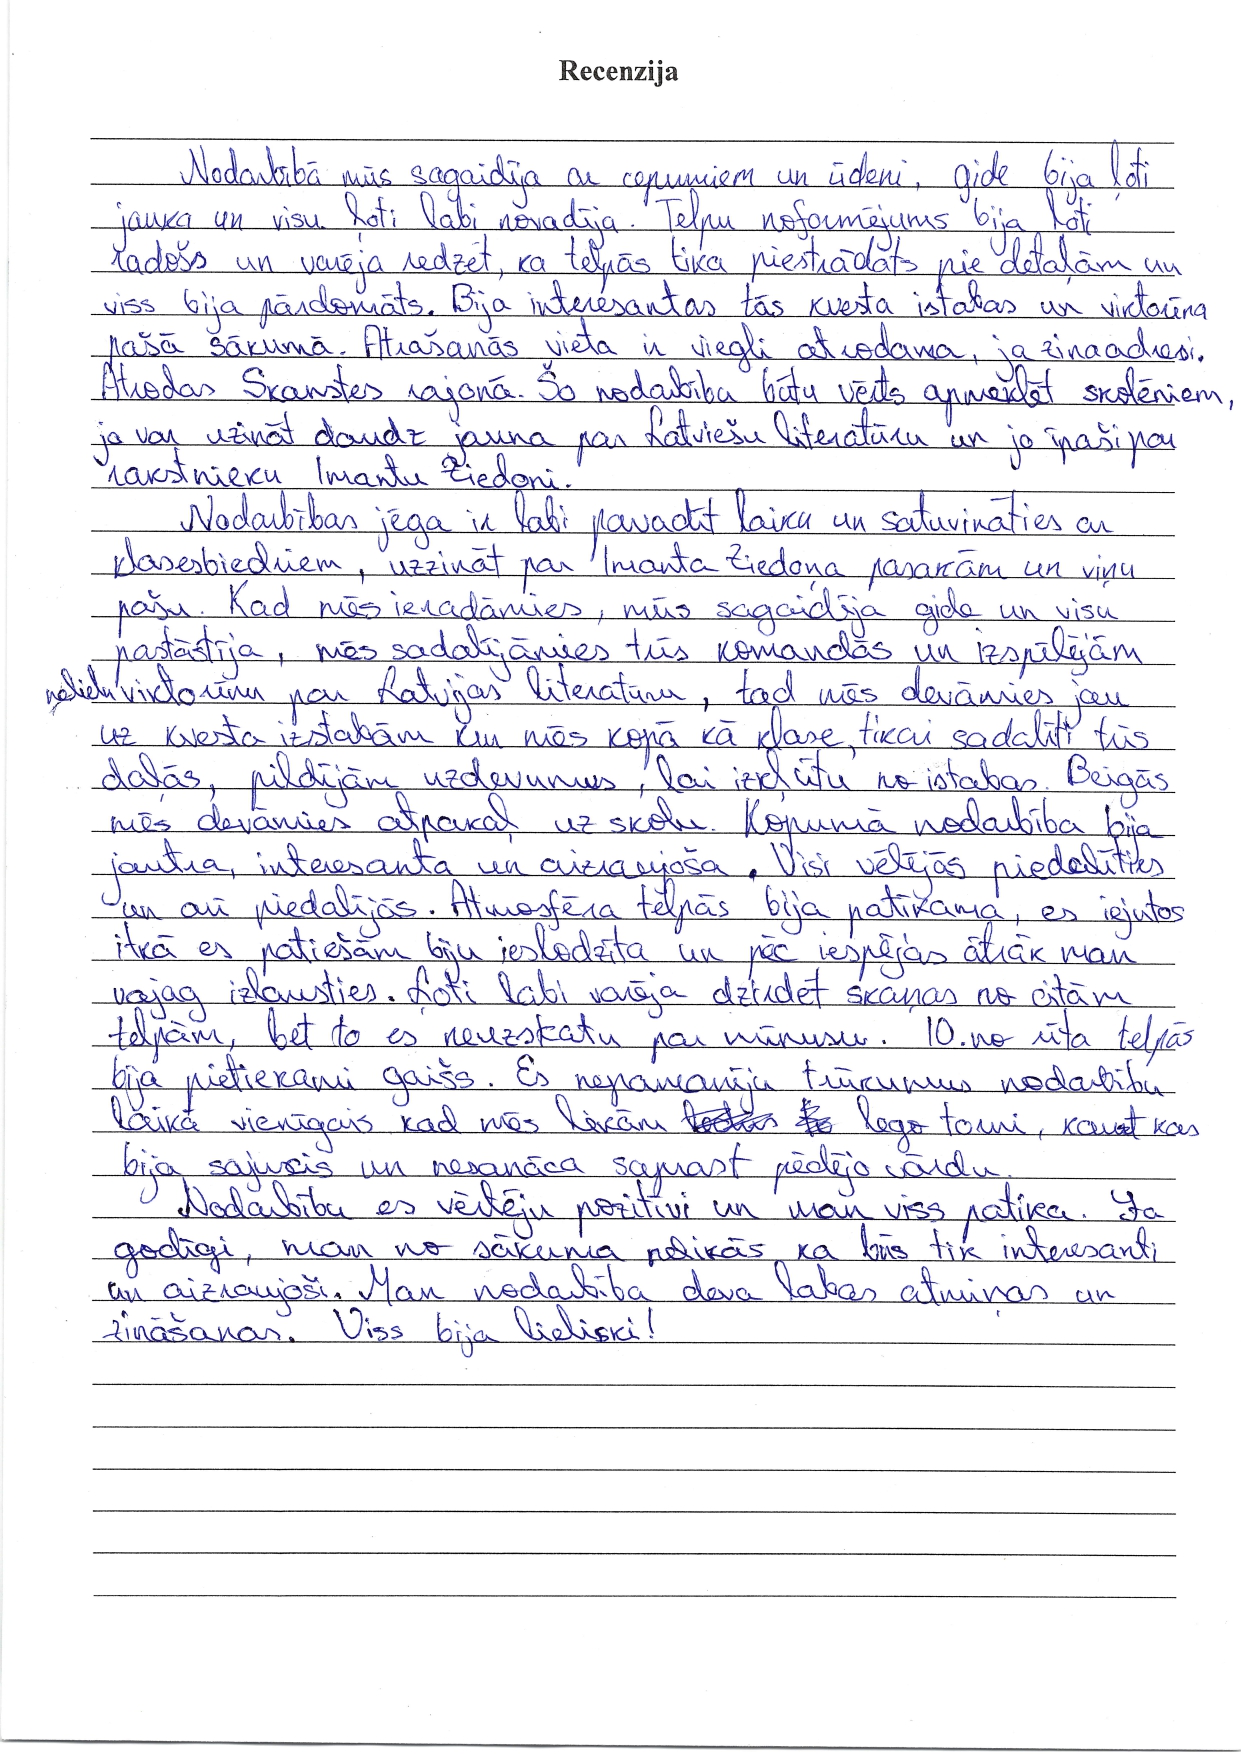 Recenzija
Nodarbībā mūs sagaidīja ar cepumiem un ūdeni, gide bija ļoti
jauka un visu ļoti labi novadīja. Telpu noformējums bija ļoti
radošs un varēja redzēt, ka telpās tika piestrādāts pie detaļām un
viss bija pārdomāts. Bija interesantas tās kvesta istabas un viktorīna
pašā sākumā. Atrašanās vieta ir viegli atrodama, ja zina adresi.
Atrodas Skanstes rajonā. Šo nodarbību būtu vērts apmeklēt skolēniem,
jo var uzināt daudz jauna par Latviešu literatūru un jo īpaši par
rakstnieku Imantu Ziedoni.
Nodarbības jēga ir labi pavadīt laiku un satuvināties ar
klasesbiedriem, uzzināt par Imanta Ziedoņa pasakām un viņu
pašu. Kad mēs ieradāmies, mūs sagaidīja gide un visu
pastāstīja, mēs sadalījāmies trīs komandās un izspēlējām
nelielu viktorīnu par Latvijas literatūru, tad mēs devāmies jau
uz kvesta izstabām kur mēs kopā kā klase, tikai sadalīti trīs
daļās, pildījām uzdevumus, lai izkļūtu no istabas. Beigās
mēs devāmies atpakaļ uz skolu. Kopumā nodarbība bija
jautra, interesanta un aizraujoša. Visi vēlējās piedalīties
un arī piedalījās. Atmosfēra telpās bija patīkama, es iejutos
itkā es patiešām biju ieslodzīta un pēc iespējas ātrāk man
vajag izlausties. Ļoti labi varēja dzirdēt skaņas no citām
telpām, bet to es neuzskatu par mīnusu. 10.no rīta telpās
bija pietiekami gaišs. Es nepamanīju trūkumus nodarbību
laikā vienīgais kad mēs likām lego torni, kaut kas
bija sajucis un nesanāca saprast pēdējo vārdu.
Nodarbību es vērtēju pozitīvi un man viss patika. Ja
godīgi, man no sākuma nelikās ka būs tik interesanti
un aizraujoši. Man nodarbība deva labas atmiņas un
zināšanas. Viss bija lieliski!